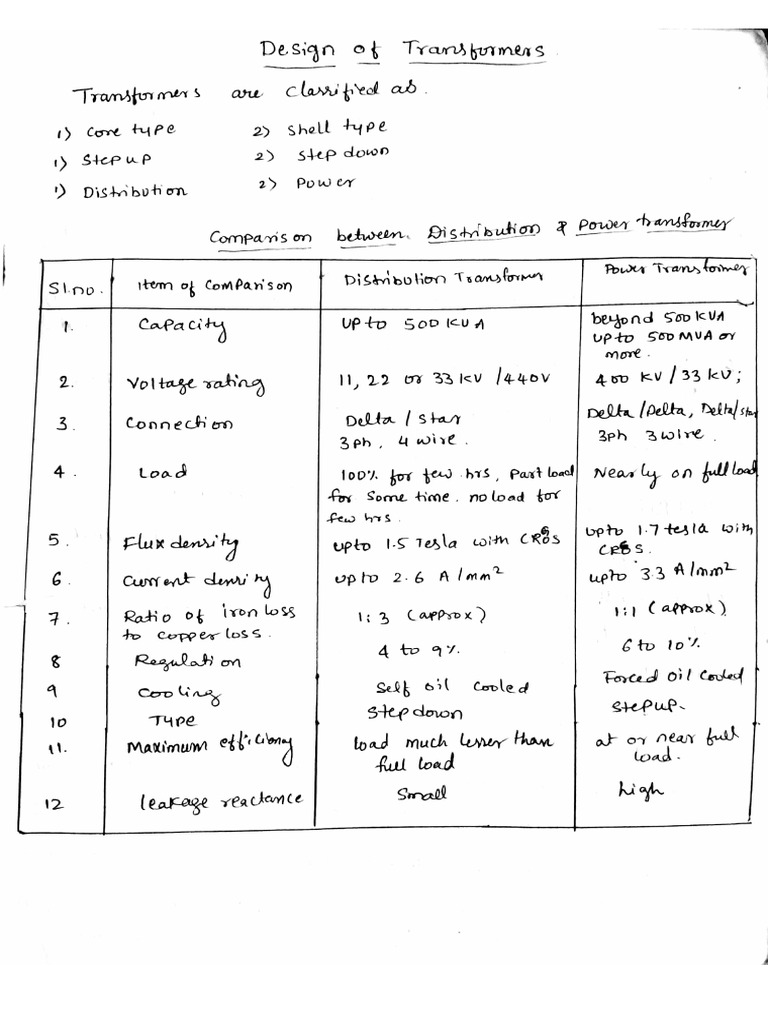 Design of Transformers
Transformers are classified as.
1) Core type 2) Shell type
1) Step up 2) Step down
1) Distribution 2) Power
Comparison between Distribution & Power transformer
Sl.no. Item of Comparison Distribution Transformer Power Transformer
1. Capacity Up to 500 KVA beyond 500 KVA
up to 500 MVA or
more.
2. Voltage rating 11, 22 or 33 KV /440V 400 KV / 33 KV;
3. Connection Delta / Star Delta / Delta, Delta/star
3ph, 4 wire. 3ph 3 wire.
4. Load 100% for few hrs, Part load Nearly on full load
for some time. no load for
few hrs.
5. Flux density upto 1.5 Tesla with CRGS upto 1.7 tesla with
CRGS.
6. Current density upto 2.6 A/mm² upto 3.3 A/mm²
7. Ratio of iron loss 1:3 (approx) 1:1 (approx)
to copper loss.
8 Regulation 4 to 9%. 6 to 10%
9 Cooling Self oil cooled Forced Oil Cooled
10 Type Step down Step up.
11. Maximum efficiency load much lesser than at or near full
full load load.
12 leakage reactance Small high